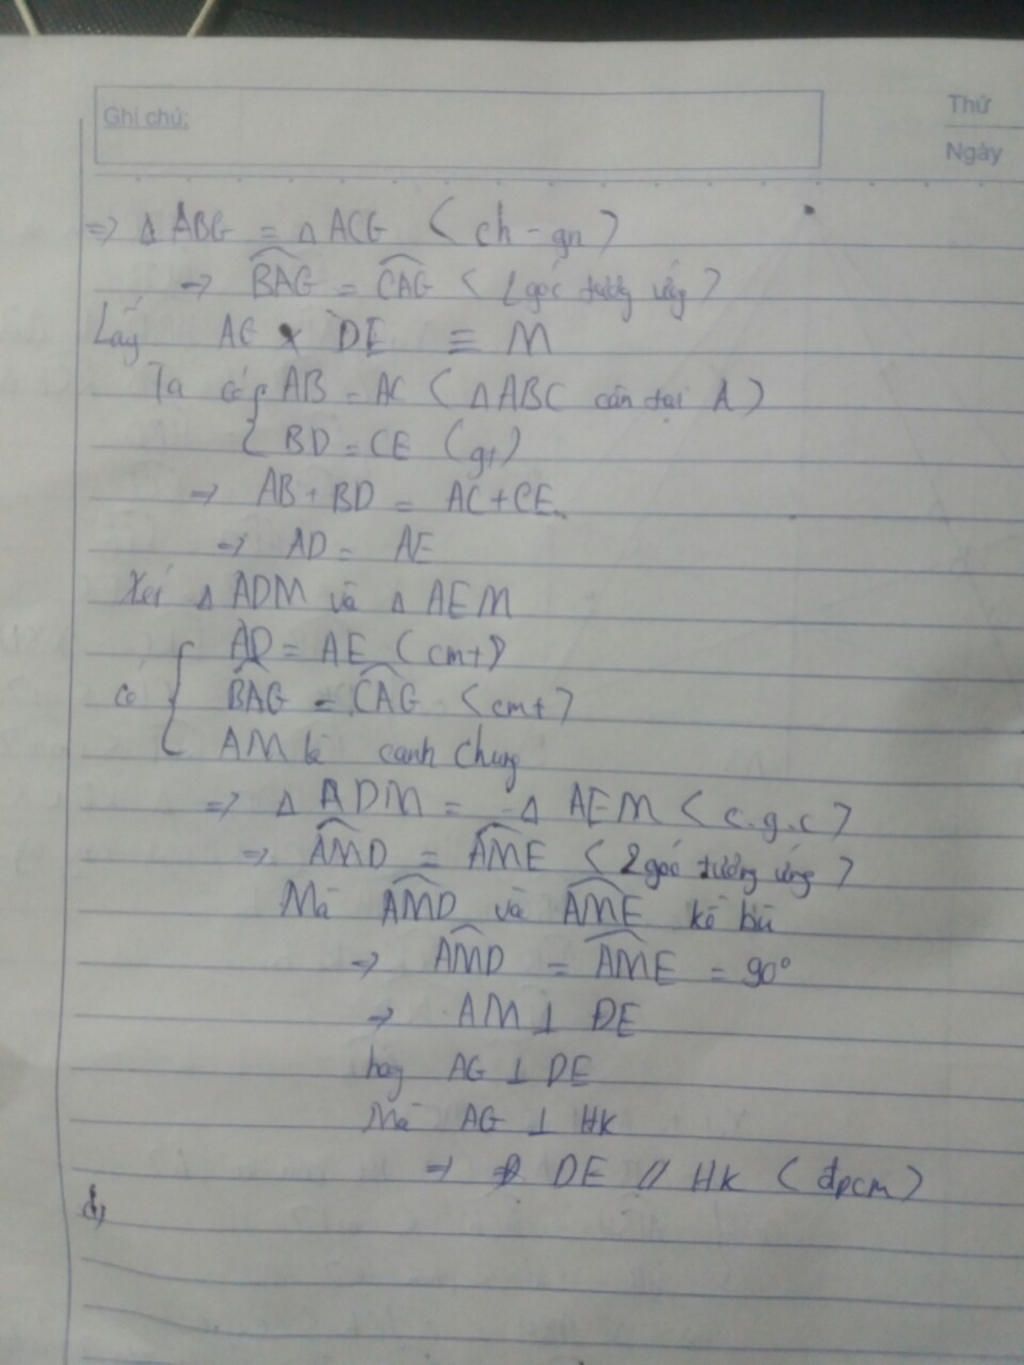 Ghi chú:
Thứ
Ngày
=> Δ ABG = Δ ACG (ch - gn)
=> BAG = CAG (2 góc tương ứng)
Lấy AG x DE ≡ M
Ta có { AB = AC (Δ ABC cân tại A)
BD = CE (gt)
=> AB + BD = AC + CE
=> AD = AE
Xét Δ ADM và Δ AEM
AD = AE (cmt)
có { BAG = CAG (cmt)
AM là cạnh chung
=> Δ ADM = Δ AEM (c.g.c)
=> AMD = AME (2 góc tương ứng)
Mà AMD và AME kề bù
=> AMD = AME = 90°
=> AM ⊥ DE
hay AG ⊥ DE
Mà AG ⊥ HK
=> DE // HK (đpcm)
d,